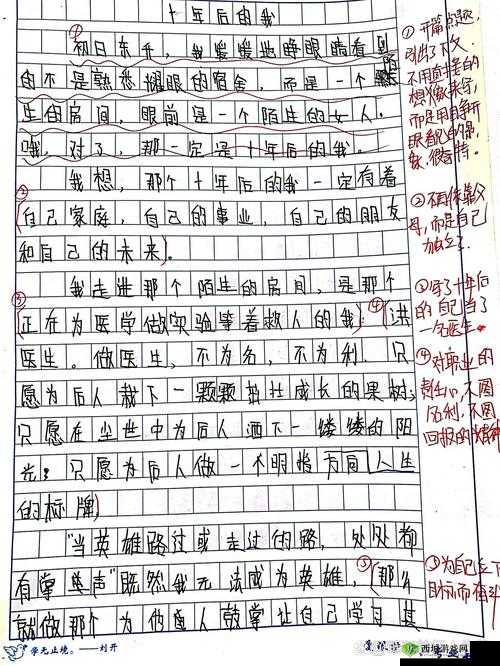 十年后的我
①
初日东升，我缓缓地睁眼睛看到
的不是熟悉耀眼的宿舍，而是一个陌
生的房间，眼前是一个陌生的女人。
哦，对了，那一定是十年后的我。
我想，那个十年后的我一定有着
②
(自己家庭，自己的事业，自己的朋友
和自己的未来)。
我走进那个陌生的房间，是那个
③
(正在为医学做实验等着救人的我)④(洪
医生。做医生，不为名，不为利．只
愿为后人栽下一颗颗茁壮成长的果树；
只愿在尘世中为后人洒下一缕缕的阳
光；只愿为后人做一个明指方向人生
的标牌)
"当英雄路过或走过的路，处处都
有掌声"既然我无法成为英雄，⑤(那么
就做那个为他人鼓掌让自己学习其
①开篇点题，
引出了下文
不用直接的
而是用自己睁开
眼看
②不再依靠父
母，而是自己
独立了
③写了十年后
的自己当了
一名医生
④对职业的
不图
名利，不图
回报的精神
⑤为自己立下
目标而奋斗
学无止境。——刘开
西城游戏网